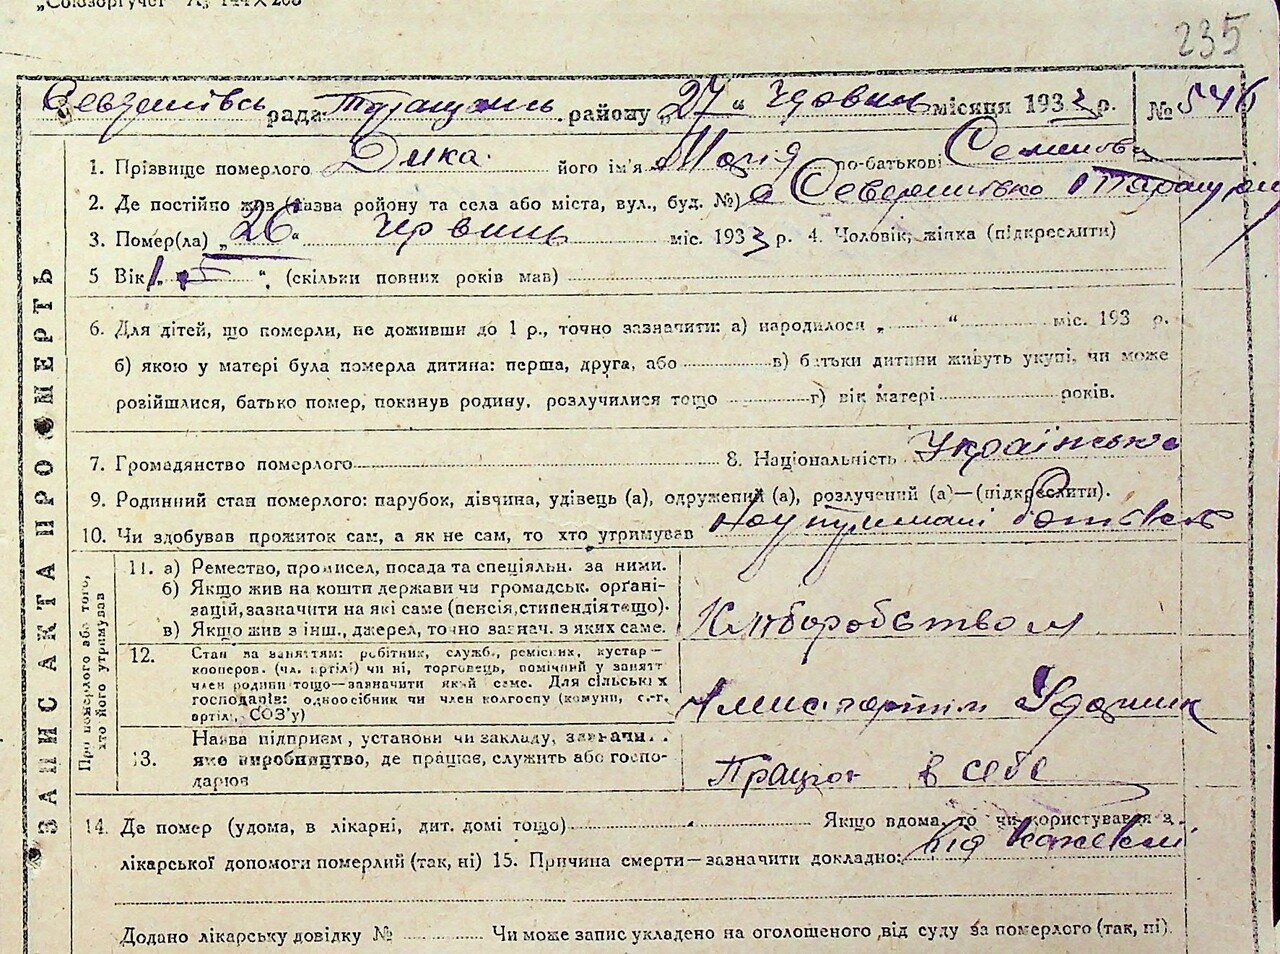 235
рада Таращань району „27“ Червень місяця 1933 р. № 546
1. Прізвище померлого Дика його ім'я Марія по-батькові Семенов
2. Де постійно жив (назва району та села або міста, вул., буд. №) с
3. Помер(ла) „26“ Червень міс. 1933 р. 4. Чоловік, жінка (підкреслити)
5 Вік „ “ (скільки повних років мав)
6. Для дітей, що померли, не доживши до 1 р., точно зазначити: а) народилося „ “ міс. 193 р.
б) якою у матері була померла дитина: перша, друга, або в) батьки дитини живуть укупі, чи може
розійшлися, батько помер, покинув родину, розлучилися тощо г) вік матері років.
7. Громадянство померлого 8. Національність Українська
9. Родинний стан померлого: парубок, дівчина, удівець (а), одружений (а), розлучений (а)—(підкреслити).
10. Чи здобував прожиток сам, а як не сам, то хто утримував На утримані батьків
ЗАПИС АКТА ПРО СМЕРТЬ
Про померлого або того, хто його утримував
11. а) Ремество, промисел, посада та спеціяльн. за ними.
б) Якщо жив на кошти держави чи громадськ. орґані-
зацій, зазначити на які саме (пенсія, стипендія тощо).
в) Якщо жив з інш., джерел, точно зазнач. з яких саме.
Хліборобством
12. Стан за заняттям: робітник, служб., ремісник, кустар—
кооперов. (чл. артілі) чи ні, торговець, помічний у занятт
член родини тощо—зазначити який саме. Для сільських
господарів: одноосібник чи член колгоспу (комуни, с.-г.
артілі, СОЗ'у)
Член артіли Ударник
13. Назва підприєм, установи чи закладу, зазначи..
яке виробництво, де працює, служить або госпо-
дарює
Працює в себе
14. Де помер (удома, в лікарні, дит. домі тощо) Якщо вдома, то чи користувався з.
лікарської допомоги померлий (так, ні) 15. Причина смерти—зазначити докладно: від
Додано лікарську довідку № Чи може запис укладено на оголошеного від суду за померлого (так, ні).